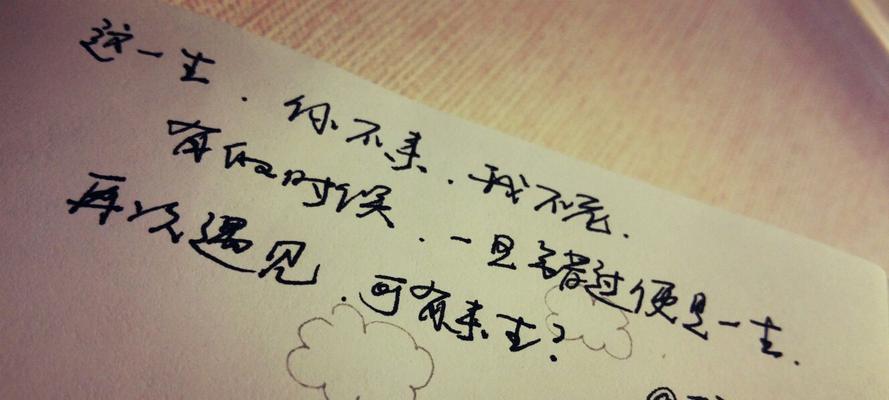 这一生.你不来.我不老.
有的时候.一旦错过便是一生.
再次遇见.可有来生?
@